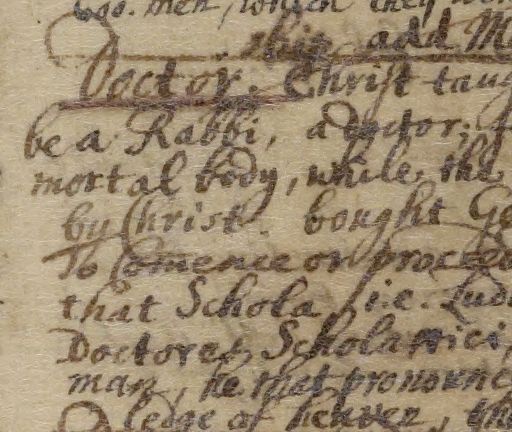 men, which they
ship, add
Doctor. Christ taug
be a Rabbi, a doctor,
mortal body, while the
by Christ. bought
To Comence or proceed
that Schola, i.e. Lud
Doctores Scholastici,
man, he that pronounc
ledge of heaven, th